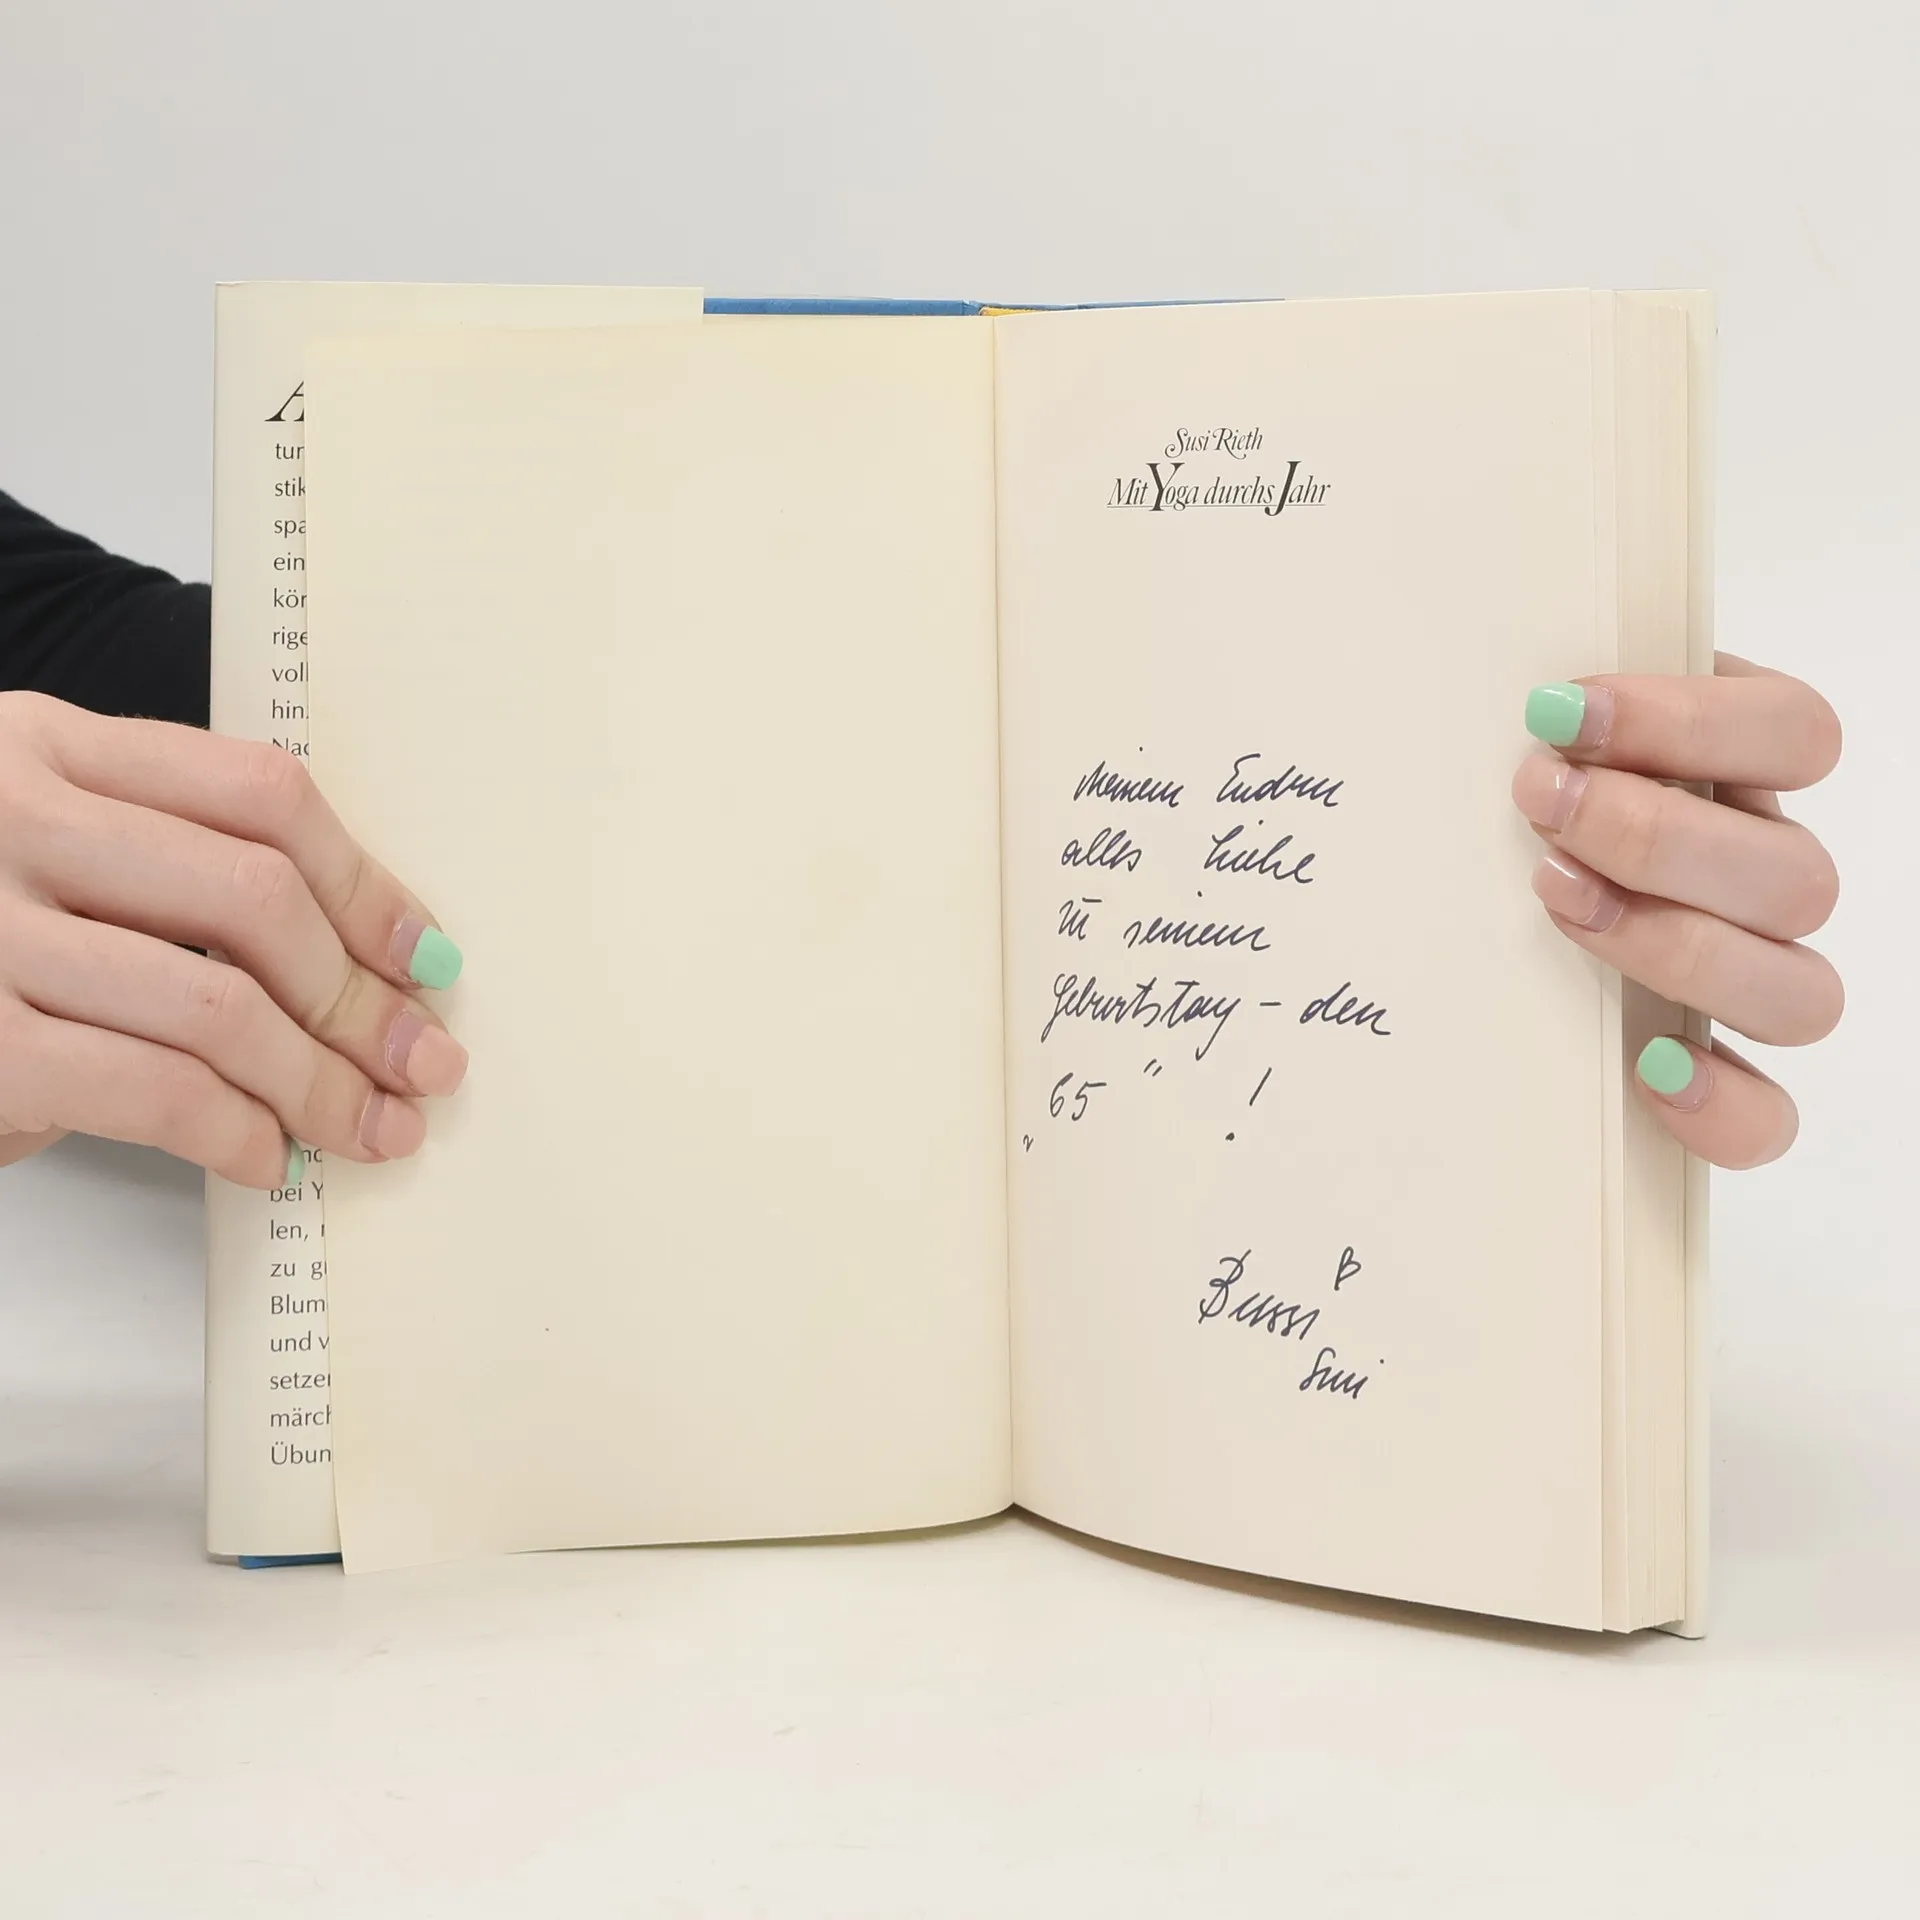 A
tur
stik
spa
ein
kör
rige
voll
hin.
Nac
bei Y
len,
zu gi
Blum
und v
setzen
märch
Übun
Susi Rieth
Mit Yoga durchs Jahr
meinem
alles Liebe
zu seinem
Geburtstag – den
„65“ !
Bussi
Susi